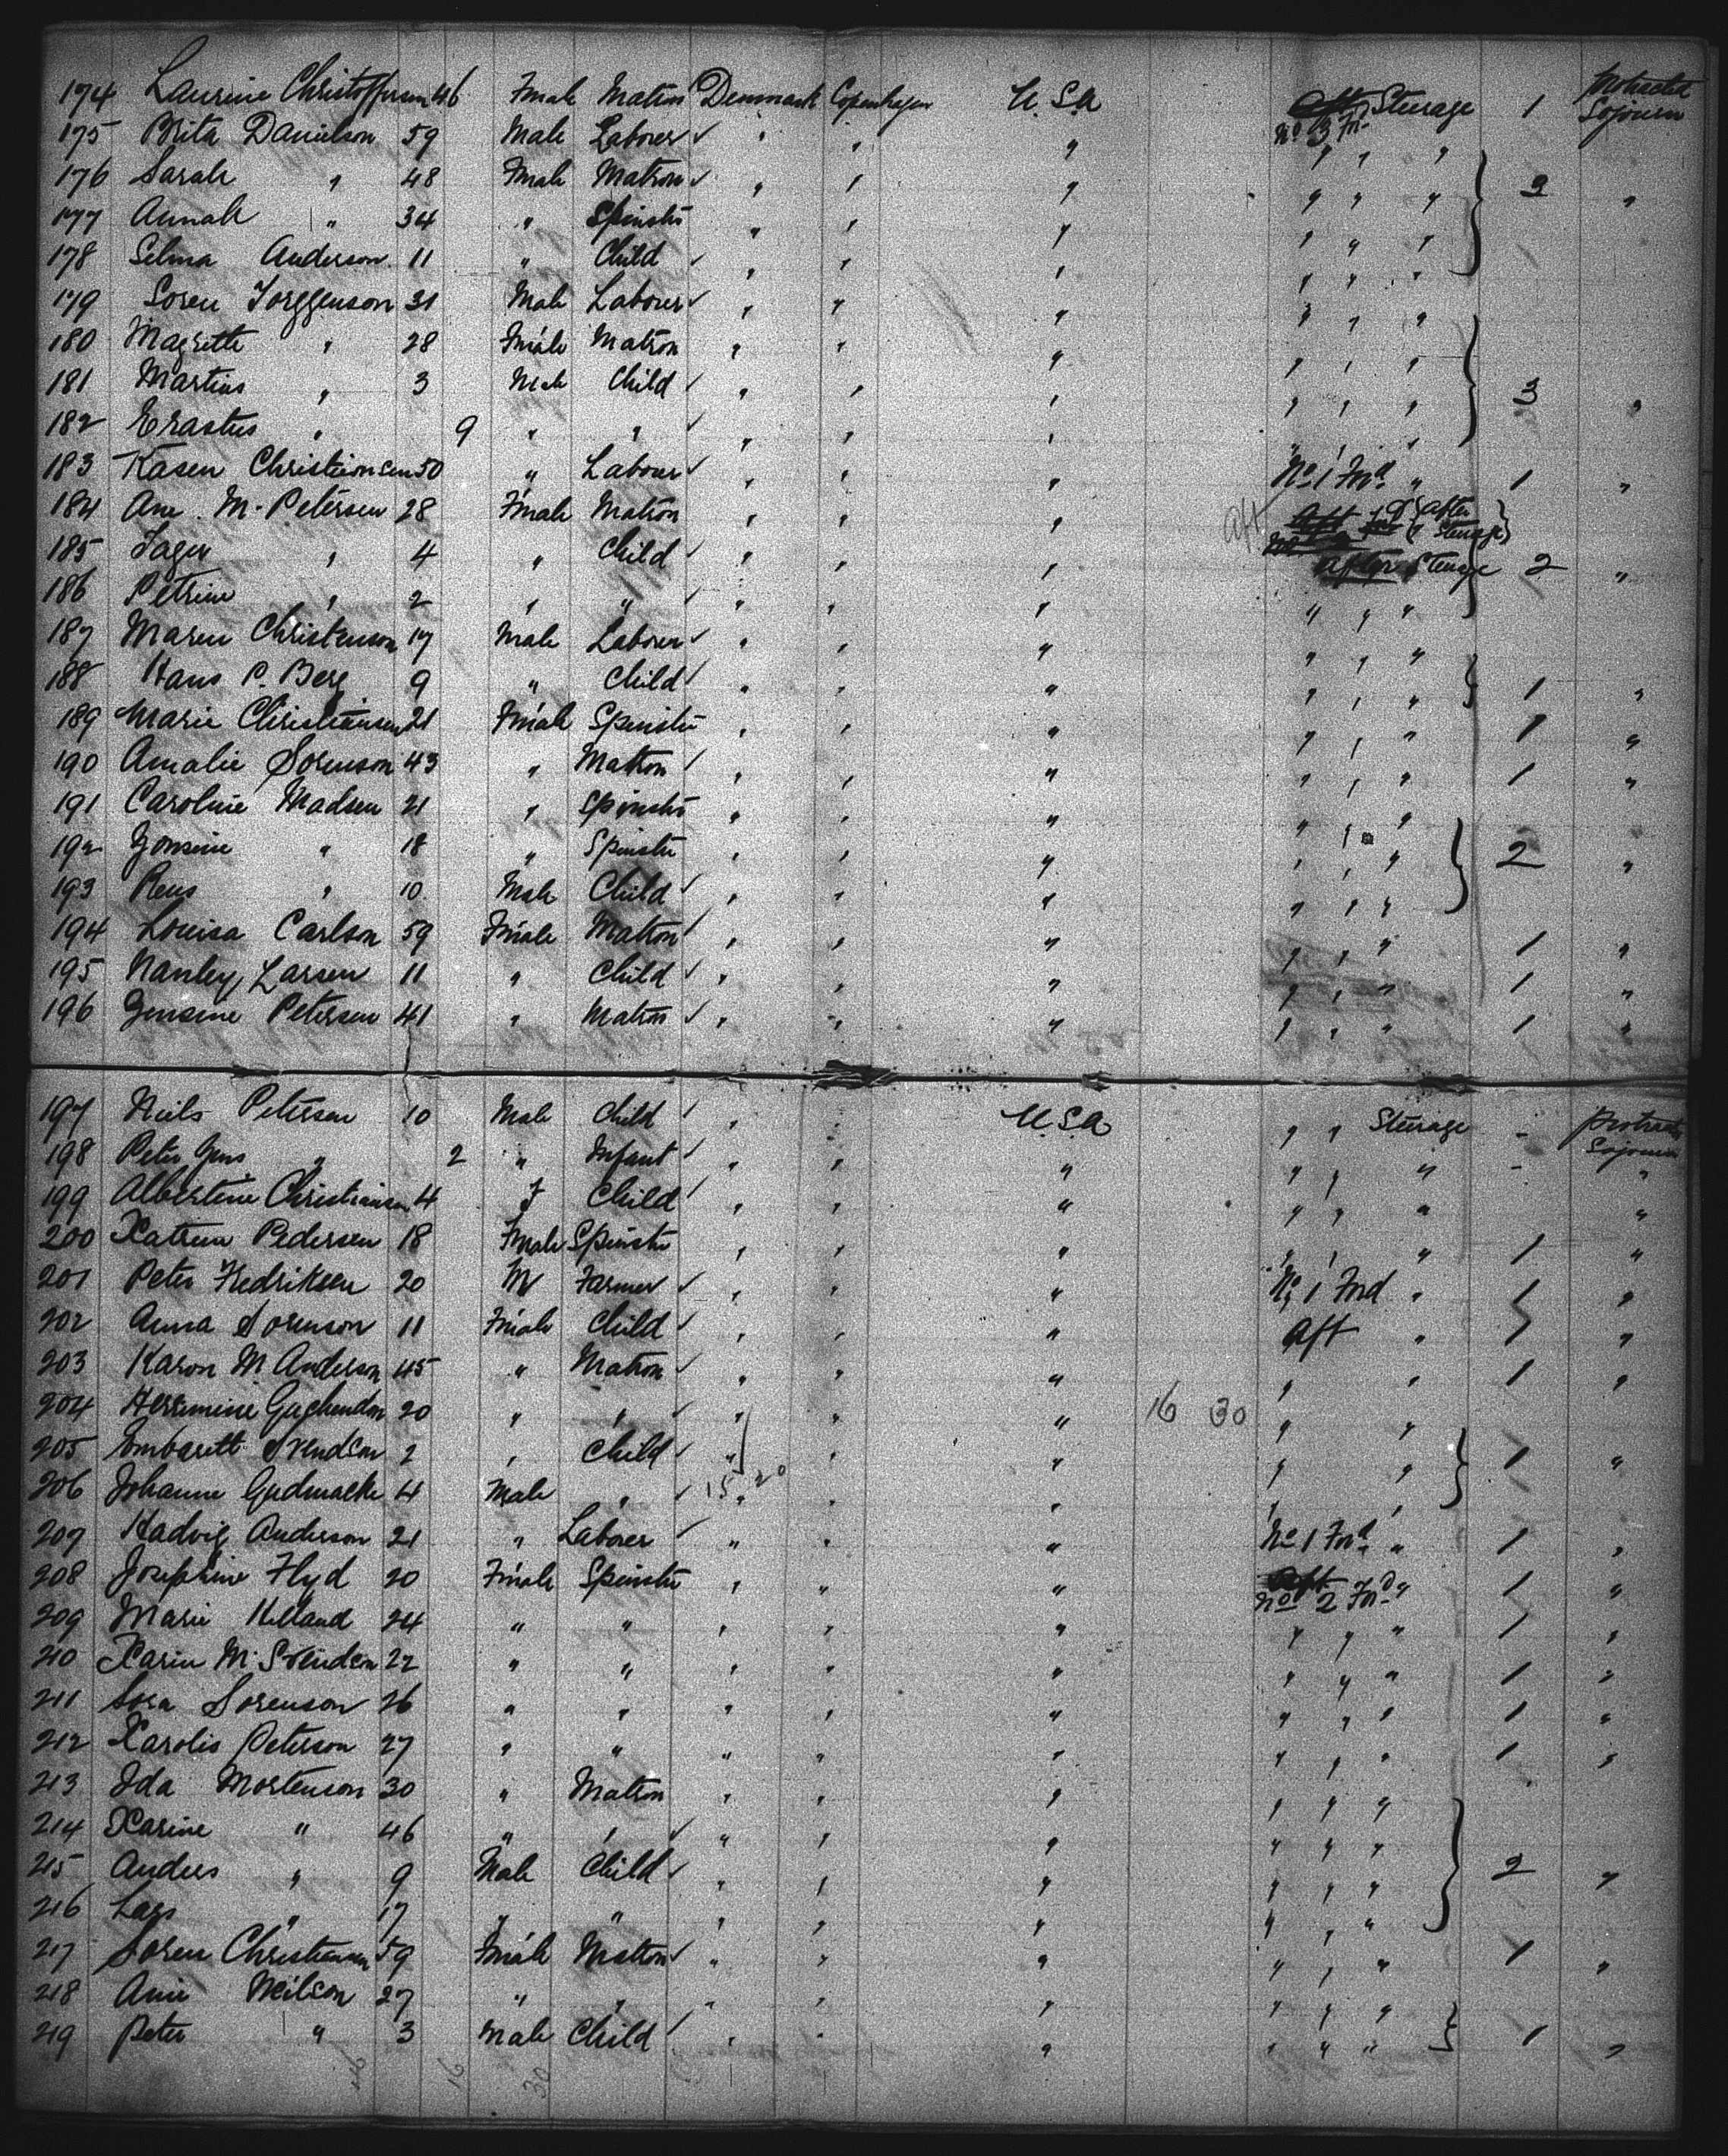 174 Laurine Christoffersen 46 Fmale Matron Denmark Copenhagen U.S.A Steurage 1 Protracted Sojourn
175 Brita Danielson 59 Male Laborer " " " No 3 Fr " " "
176 Sarah " 48 Fmale Matron " " " " " " 3 "
177 Annah " 34 " Spinster " " " " " "
178 Selma Anderson 11 " Child " " " " " "
179 Soren Jorggenson 31 Male Laborer " " " " " "
180 Magrette " 28 Fmale Matron " " " " " "
181 Martius " 3 Male Child " " " " " " 3 "
182 Erastus " 9 " " " " " " " "
183 Kasen Christionsen 50 " Laborer " " " No 1 Fwd " 1 "
184 Ane M. Petersen 28 Fmale Matron " " " aft after Steurage
185 " 4 " Child " " " After Steurage 2 "
186 Petrine " 2 " " " " " " " "
187 Maren Christenson 17 Male Laborer " " " " " "
188 Hans P. Berg 9 " Child " " " " " " 1 "
189 Marie Christiansen 21 Fmale Spinster " " " " " " 1 "
190 Amalie Sorenson 43 " Matron " " " " " " 1 "
191 Caroline Madsen 21 " Spinster " " " " " "
192 " 18 " Spinster " " " " " " 2 "
193 Rens " 10 Male Child " " " " " "
194 Louisa Carlson 59 Fmale Matron " " " " " " 1 "
195 Larsen 11 " Child " " " " " " 1 "
196 Jensine Petersen 41 " Matron " " " " " " 1 "
197 Niels Petersen 10 Male Child " " U.S.A " " Steurage - Protracted Sojourn
198 Peter Jens " 2 " Infant " " " " " " - "
199 Albertine Christiansen 4 F Child " " " " " " "
200 Katrine Pedersen 18 Fmale Spinster " " " " " " 1 "
201 Peter Fredriksen 20 M Farmer " " " No 1 Fwd " 1 "
202 Anna Sorenson 11 Fmale Child " " " Aft " 1 "
203 Karon M Anderson 45 " Matron " " " " " 1 "
204 Hersimine 20 " " " " " 16 30 " "
205 Svendson 2 " Child " " " " " 1 "
206 Johanne 4 Male " 15 20 " " " " "
207 Hadvig Anderson 21 " Laborer " " " No 1 Fwd " 1 "
208 Josephine Flyd 20 Fmale Spinster " " " No 2 Fwd " 1 "
209 Marie 24 " " " " " " " " 1 "
210 Karin M. Svendson 22 " " " " " " " " 1 "
211 Sora Sorenson 26 " " " " " " " " 1 "
212 Karolis Peterson 27 " " " " " " " " 1 "
213 Ida Mortenson 30 " Matron " " " " " "
214 Karine " 46 " " " " " " " "
215 Anders " 9 Male Child " " " " " " 2 "
216 Lars " 17 " " " " " " " "
217 Soren Christiansen 59 Fmale Matron " " " " " " 1 "
218 Ane Neilson 27 " " " " " " " "
219 Peter " 3 Male Child " " " " " " 1 "
16 16 30